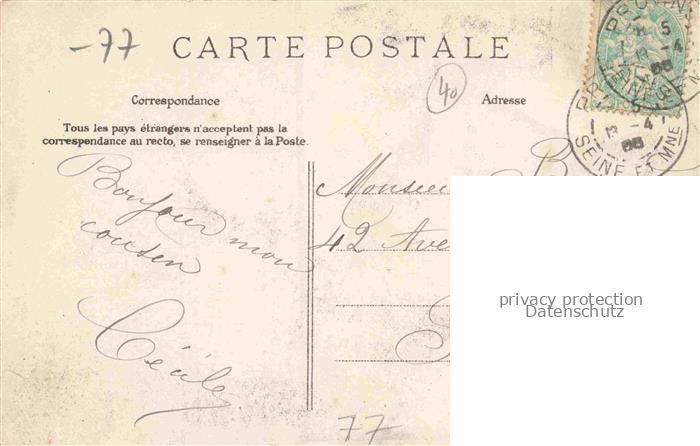 -77
CARTE POSTALE
40
Correspondance
Adresse
Tous les pays étrangers n'acceptent pas la
correspondance au recto, se renseigner à la Poste.
Bonjour mon
cousin
Cécile
Monsieu
42 Ave
privacy protection
Datenschutz
77
PROVINS
5
-4
SEINE ET MNE
13 -4